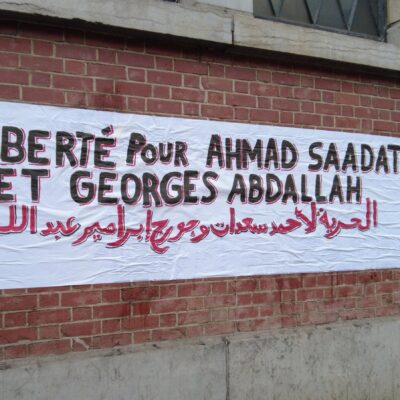 BERTÉ POUR AHMAD SAADAT
ET GEORGES ABDALLAH
الحرية لأحمد سعدات و جورج إبراهيم عبد الله